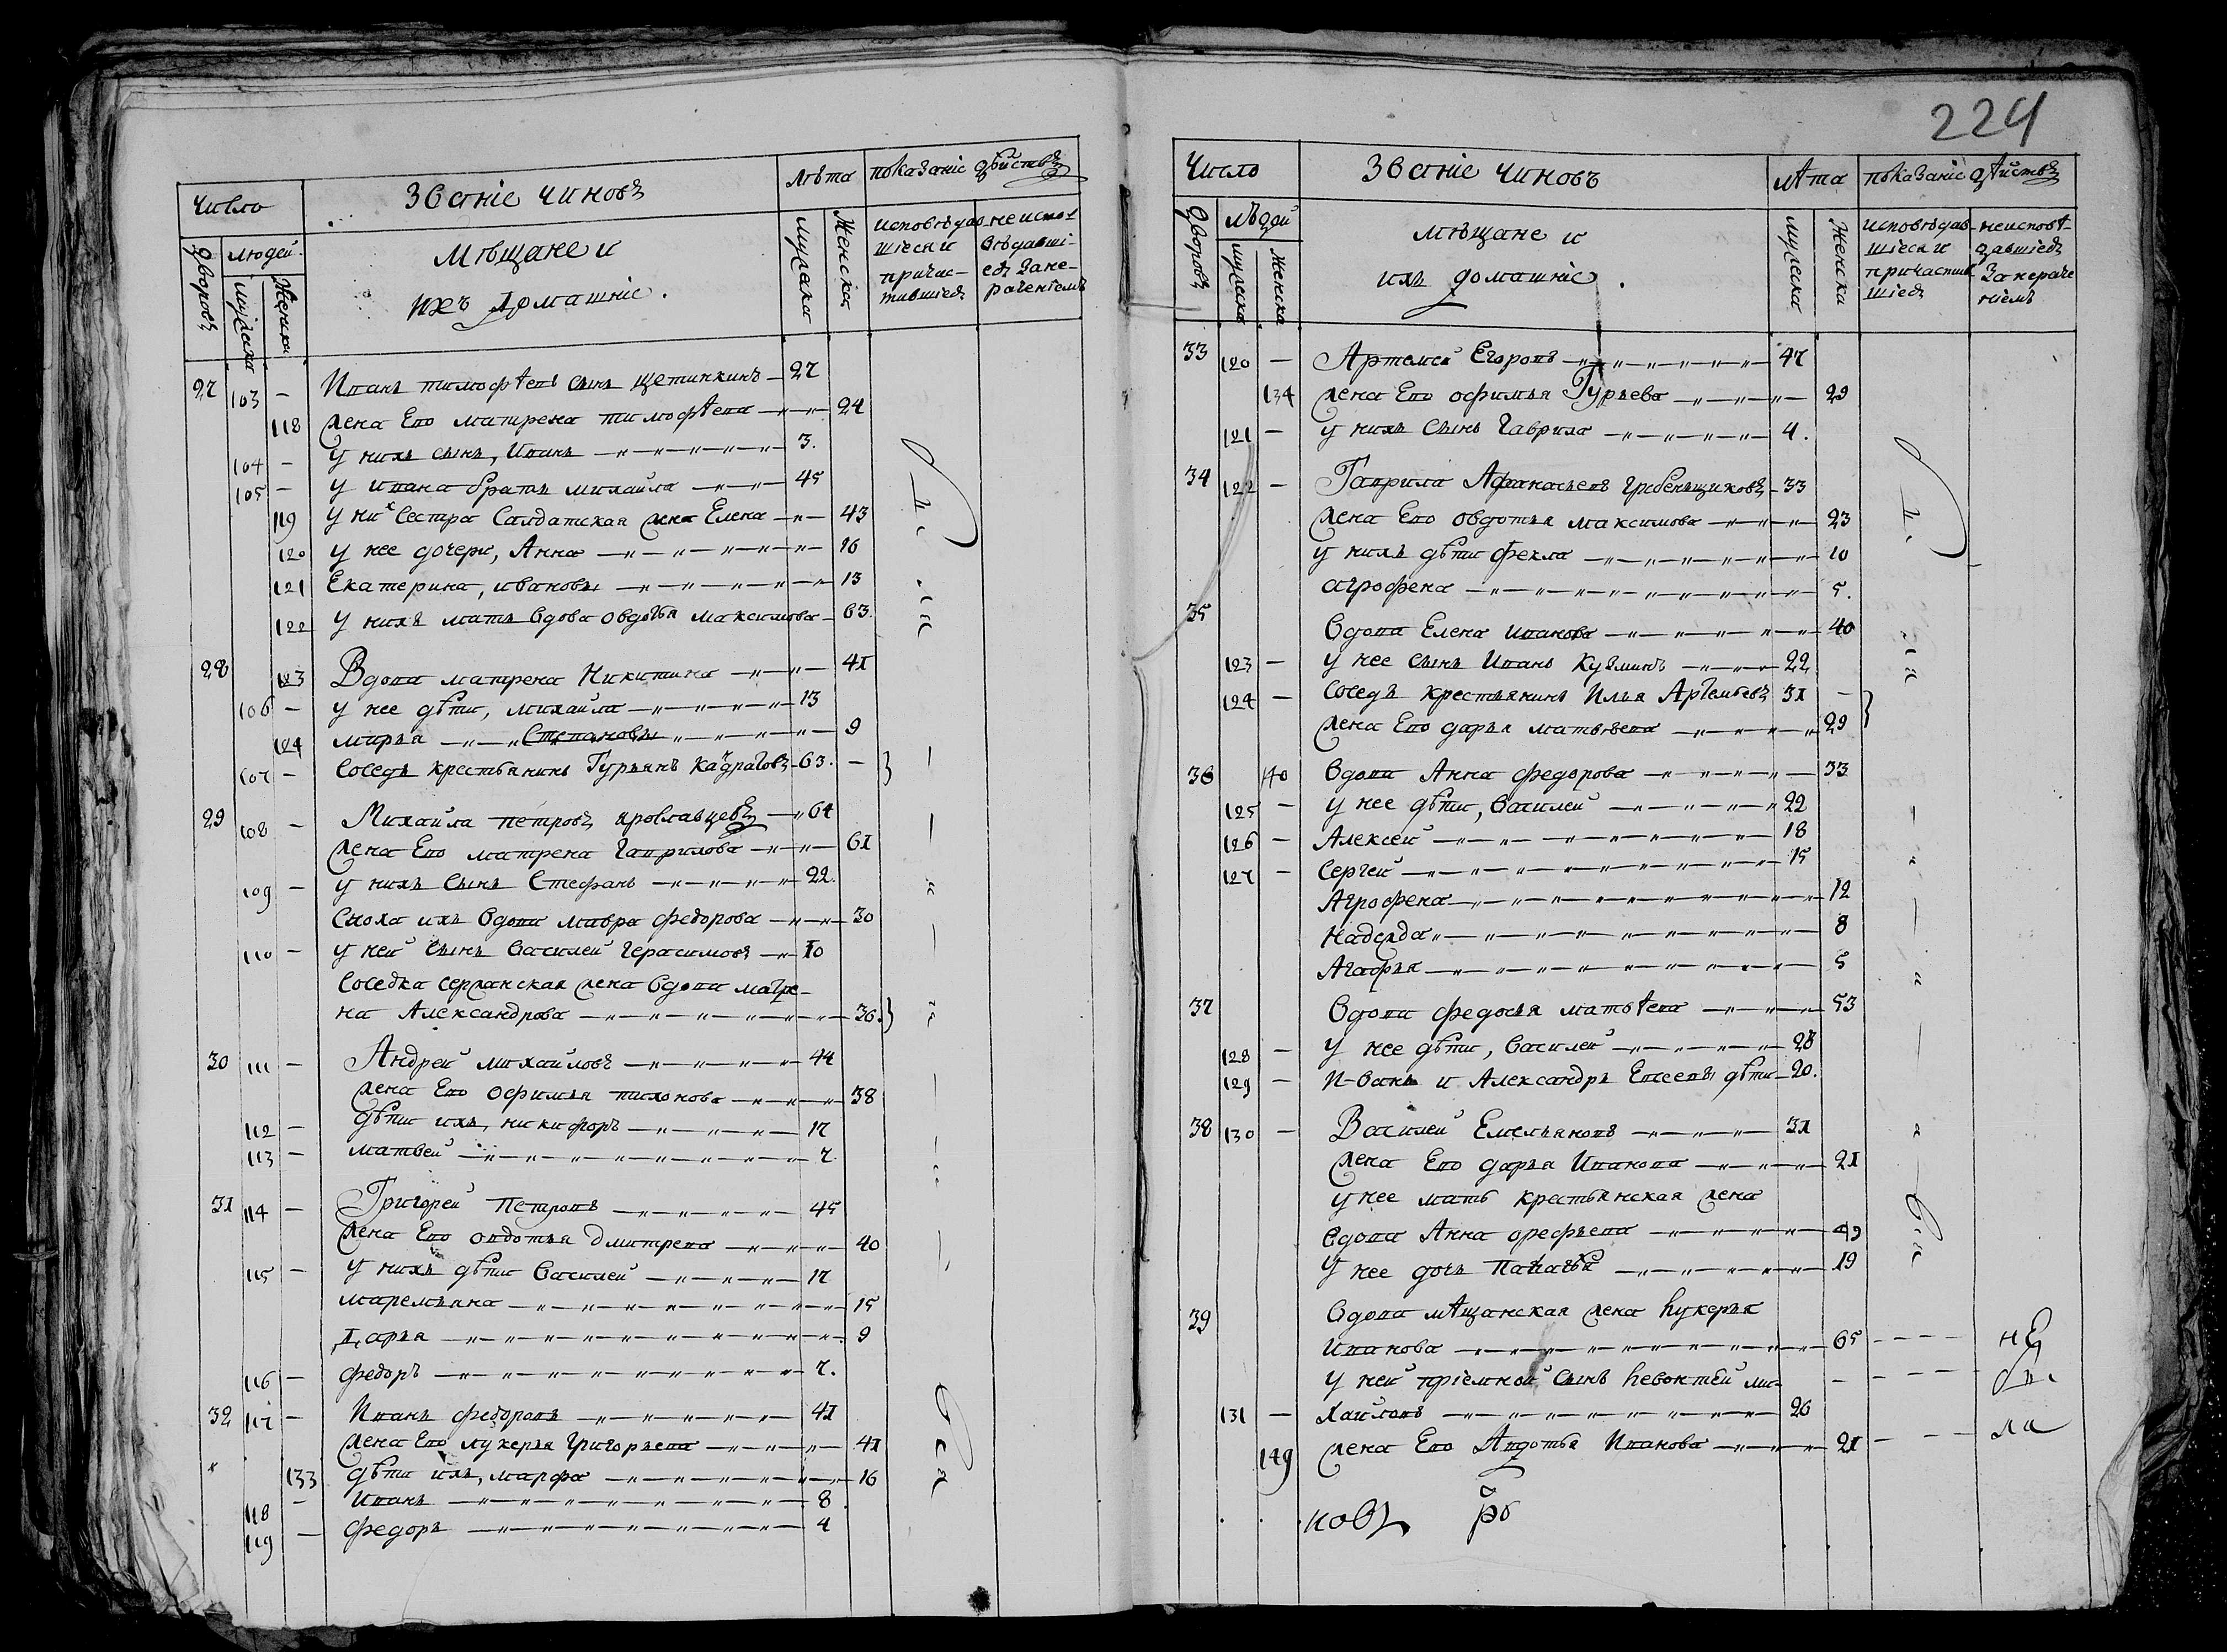 Число
Званіе чиновъ
лѣта
показаніе дѣйствъ
дворовъ
людей
мужеска
женска
Мѣщане и
ихъ домашніе.
мужеска
женска
исповѣдав-
шіеся и
причас-
тившіеся
неиспо-
вѣдавші-
еся за не-
раченіемъ
27 103 – Иванъ тимофѣевъ сынъ щетинкинъ – 27
118 жена Ево матрена тимофѣева – 24
104 – у нихъ сынъ, Иванъ – 3.
105 – у ивана братъ михаила – 45
119 у них сестра Салдатская жена Елена – 43
120 у нее дочери, Анна – 16
121 Екатерина, ивановы – 13
122 у нихъ мать вдова овдотья максимова – 63.
28 123 Вдова матрена Никитина – 41
106 – у нее дѣти, михаила – 13
124 марья – Степановы – 9
107 – соседъ крестьянинъ Гурьянъ – 63. –
29 108 – Михаила петровъ ярославцевъ – 64
жена Ево матрена гаврилова – 61
109 – у нихъ сынъ Стефанъ – 22.
сноха ихъ вдова мавра федорова – 30
110 – у ней сынъ василей герасимовъ – 10
соседка сержанская жена вдова матре-
на Александрова – 36.
30 111 – Андрей михаиловъ – 44
жена Ево офимья тихонова – 38
112 – дѣти ихъ, никифоръ – 17
113 – матвей – 7.
31 114 – Григорей Петровъ – 45
жена Ево овдотья дмитрева – 40
115 – у нихъ дѣти василей – 17
маремьяна – 15
Дарья – 9
116 – федоръ – 7.
32 117 – Иванъ федоровъ – 41
жена Ево лукерья григорьева – 41
133 дѣти ихъ, марфа – 16
118 – Иванъ – 8
119 – федоръ – 4
вся
224
Число
Званіе чиновъ
лѣта
показаніе дѣйствъ
дворовъ
мужеска
женска
мѣщане и
ихъ домашніе.
мужеска
женска
исповѣдав-
шіеся и
причастив
шіеся
неисповѣ-
давшіеся
за нераче
ніемъ
33 120 – Артемей Егоровъ – 47
134 жена Ево офимья Гурьева – 29
121 – у нихъ сынъ гаврила – 4.
34 122 – Гаврила Афанасьевъ гребенщиковъ – 33
жена Ево овдотья максимова – 23
у нихъ дѣти фекла – 10
агрофена – 5.
35 вдова Елена иванова – 40
123 – у нее сынъ Иванъ Кузминъ – 22
124 – соседъ крестьянинъ Илья Артемьевъ 31 –
жена Ево дарья матвѣева – 29
36 140 вдова Анна федорова – 33
125 – у нее дѣти, василей – 22
126 – Алексей – 18
127 – сергей – 15
Агрофена – 12
Надежда – 8
Агафья – 5
37 вдова федосья матвѣева – 53
128 – у нее дѣти, василей – 28
129 – И-ванъ и Александръ дѣти – 20.
38 130 – Василей Емельяновъ – 31
жена Ево дарья Иванова – 21
у нее мать крестьянская жена
вдова Анна орефьева – 49
у нее дочь – 19
39 вдова мѣщанская жена лукерья
Иванова – 65
у ней пріемной сынъ левонтей ми-
131 – хаиловъ – 26
149 жена Ево Авдотья Иванова – 21
не
бы
ла